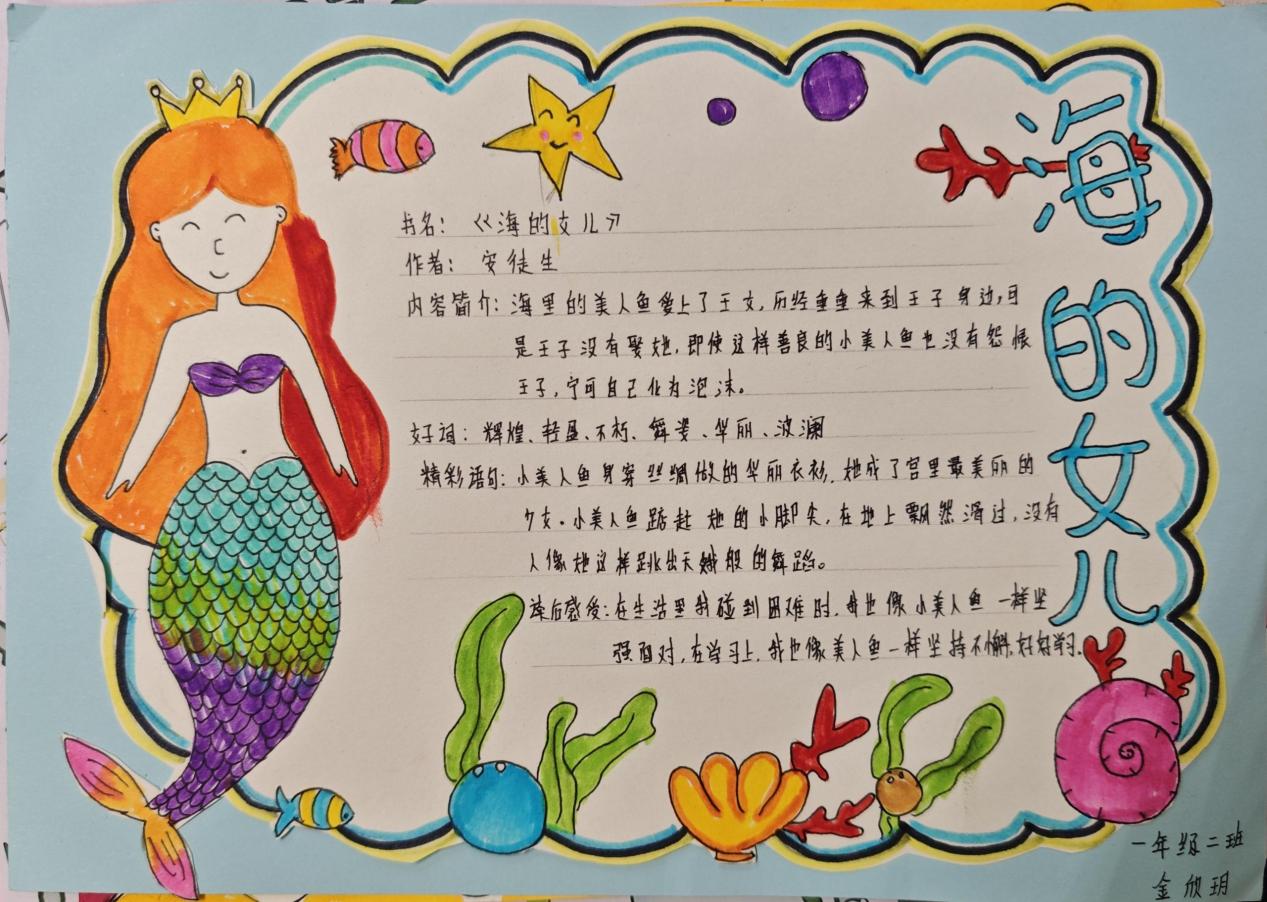 海的女儿
书名：《海的女儿》
作者：安徒生
内容简介：海里的美人鱼爱上了王女，历经重重来到王子身边，可
是王子没有娶她，即使这样善良的小美人鱼也没有怨恨
王子，宁可自己化为泡沫。
好词：辉煌、轻盈、不朽、舞姿、华丽、波澜
精彩语句：小美人鱼身穿丝绸做的华丽衣衫，她成了宫里最美丽的
少女。小美人鱼踮起她的小脚尖，在地上飘然滑过，没有
人像她这样跳出天鹅般的舞蹈。
读后感受：在生活里我碰到困难时，我也像小美人鱼一样坚
强面对，在学习上，我也像美人鱼一样坚持不懈，好好学习。
一年级二班
金欣玥